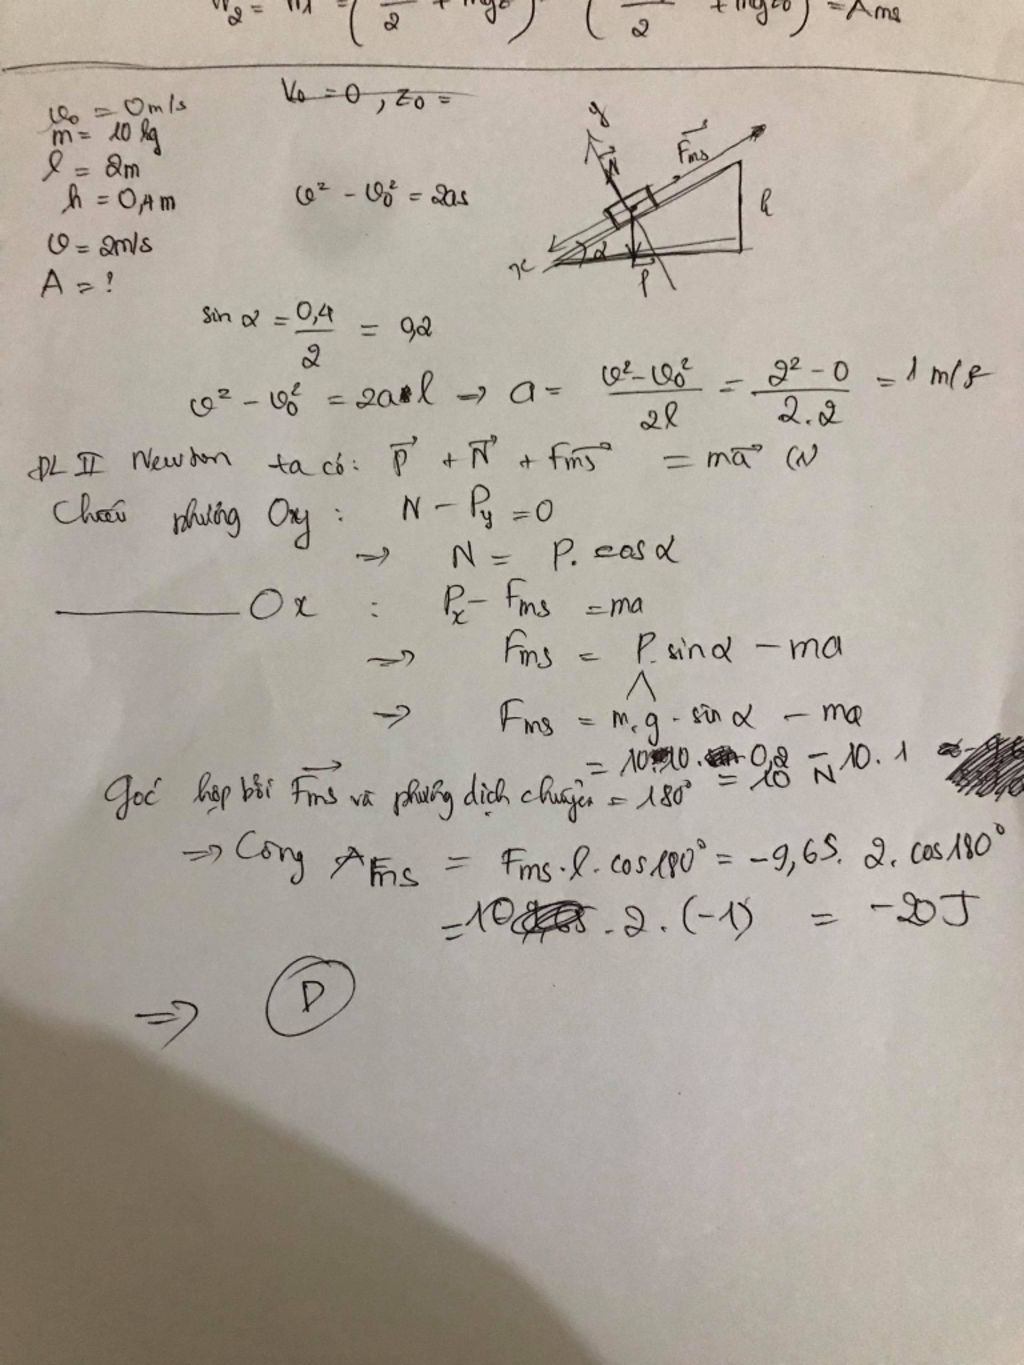 W₂ = W₁ = ( /2 + mgz) ( /2 + mgz₀) = Ams
v₀ = 0 m/s
V₀ = 0, Z₀ =
m = 10 kg
l = 2m
h = 0,4 m
v² - v₀² = 2as
v = 2m/s
A = ?
y
N
Fms
h
α
x
P
sin α = 0,4/2 = 0,2
v² - v₀² = 2a.l → a = (v² - v₀²)/2l = (2² - 0)/2.2 = 1 m/s
ĐL II Newton ta có: P + N + Fms = ma (N
Chiếu phương Oy : N - Py = 0
→ N = P. cos α
Ox : Px - Fms = ma
→ Fms = P. sin α - ma
→ Fms = m.g . sin α - ma
= 10.10. 0,2 - 10. 1
= 10 N
Góc hợp bởi Fms và phương dịch chuyển = 180°
⇒ Công AFms = Fms . l . cos 180° = -9,65. 2. cos 180°
= 10 . 2 . (-1) = -20 J
⇒ D